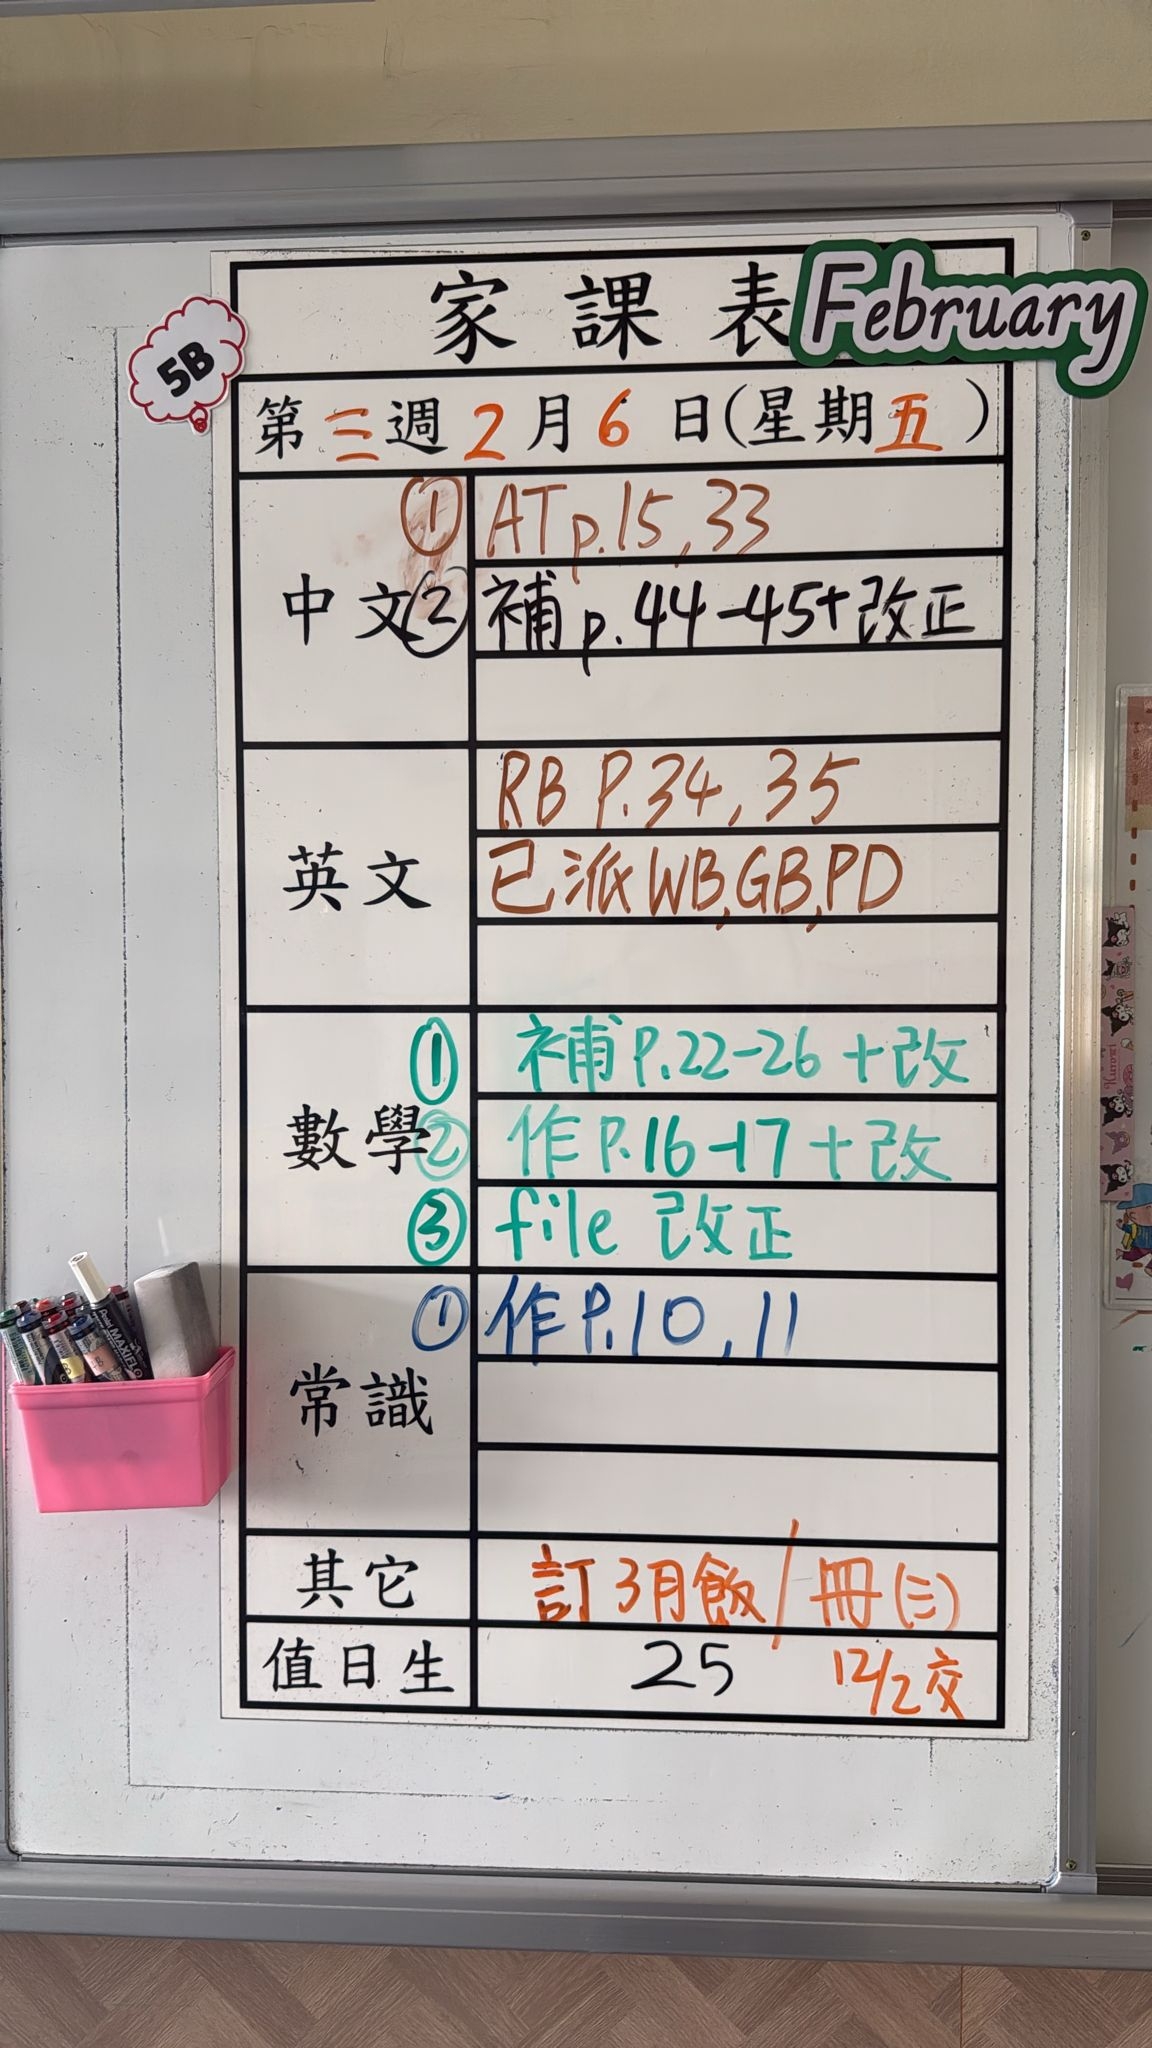 家課表 February
5B
第三週2月6日(星期五)
中文
① AT p.15,33
② 補p.44-45+改正
英文
RB P.34,35
已派WB,GB,PD
數學
① 補P.22-26+改
② 作P.16-17+改
③ file 改正
常識
① 作P.10,11
其它 訂3月飯/冊(三)
值日生 25 12/2交